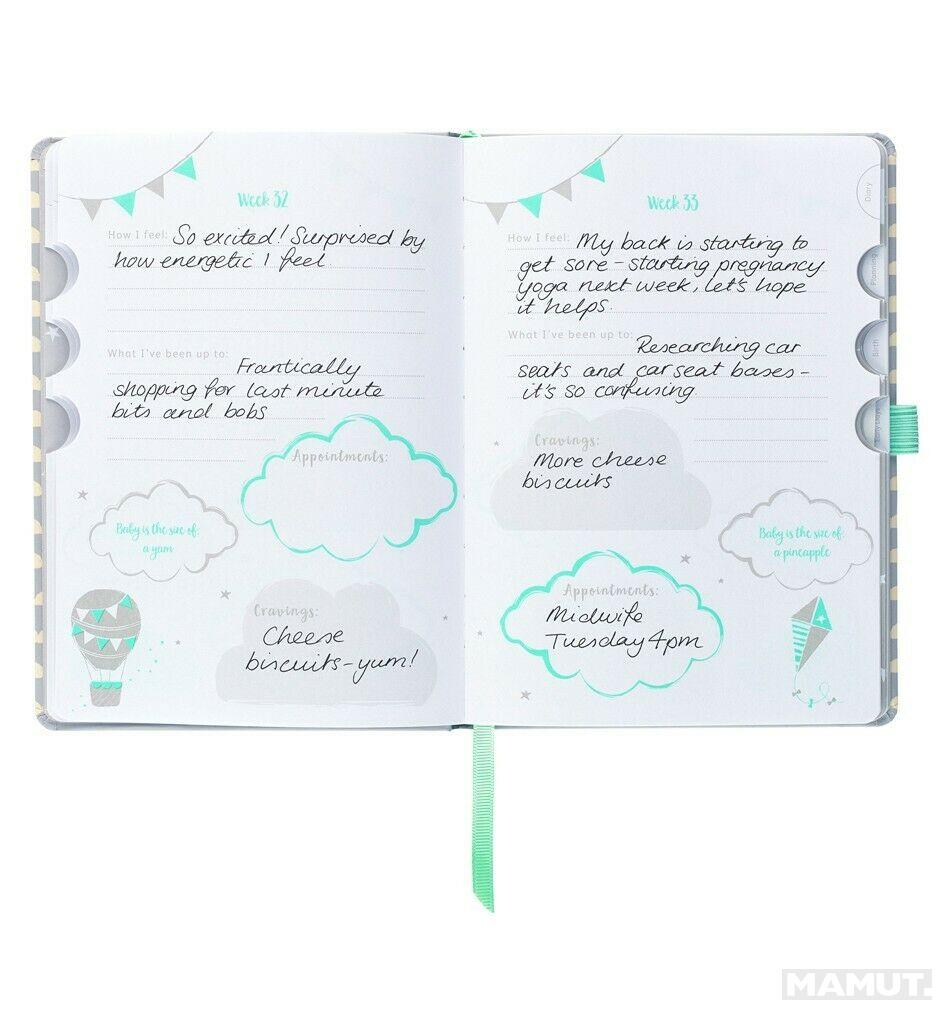 Week 32
How I feel: So excited! Surprised by
how energetic I feel
What I've been up to: Frantically
shopping for last minute
bits and bobs
Appointments:
Baby is the size of:
a yam
Cravings:
Cheese
biscuits - yum!
Week 33
How I feel: My back is starting to
get sore - starting pregnancy
yoga next week, let's hope
it helps.
What I've been up to: Researching car
seats and car seat bases -
it's so confusing
Cravings:
More cheese
biscuits
Baby is the size of:
a pineapple
Appointments:
Midwife
Tuesday 4pm
Diary
Planning
Birth
MAMUT.